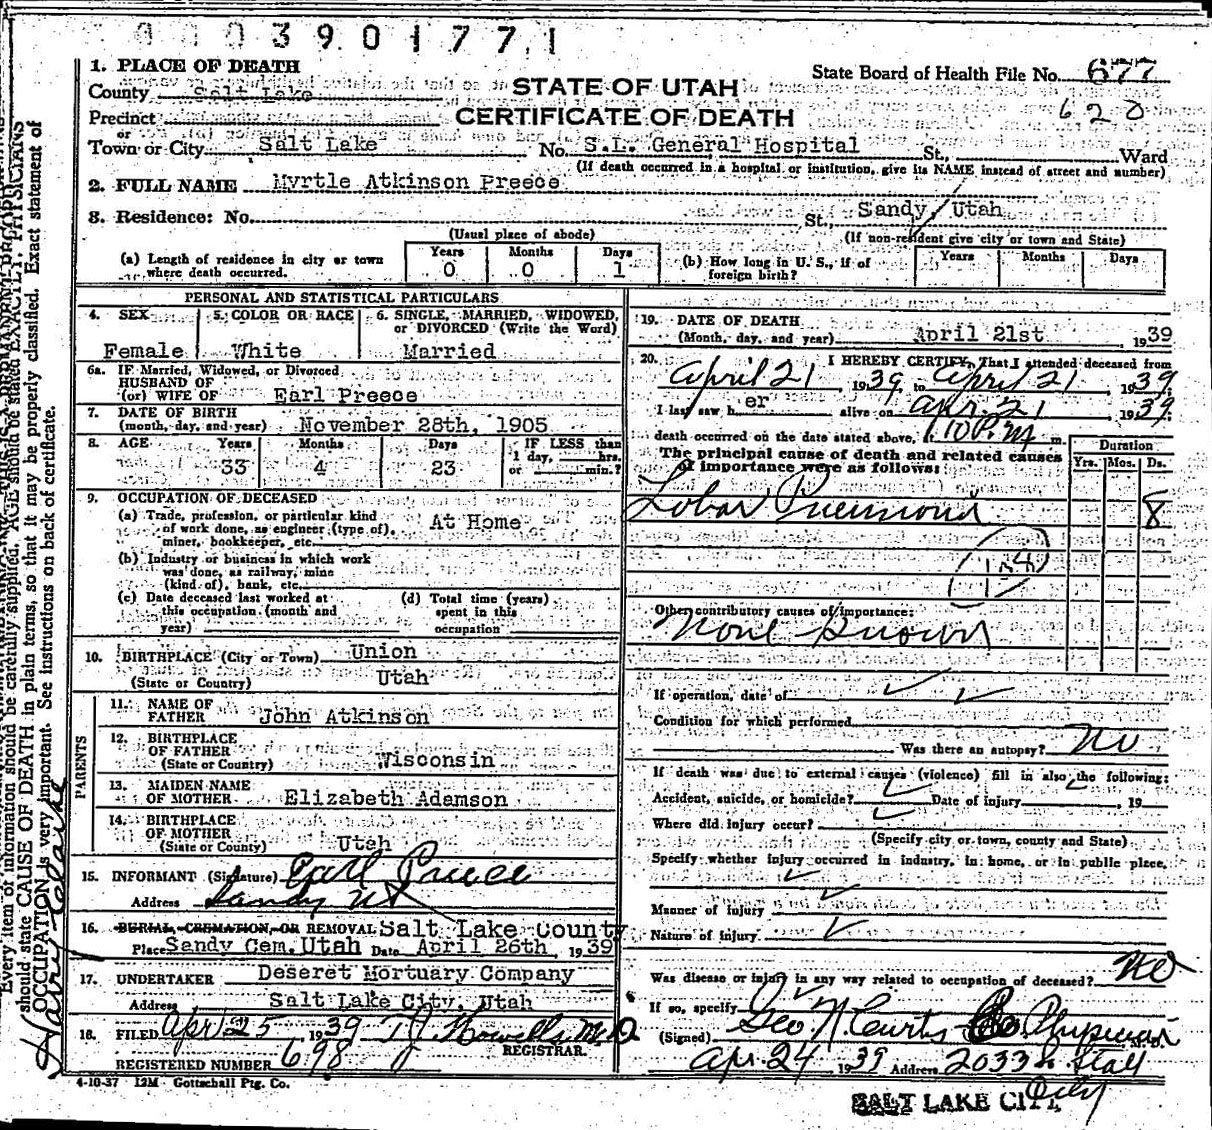 0 0 0 3 9 0 1 7 7 1
1. PLACE OF DEATH
State Board of Health File No. 677
County Salt Lake
STATE OF UTAH
620
Precinct
CERTIFICATE OF DEATH
or
Town or City Salt Lake No. S.L. General Hospital St., Ward
(If death occurred in a hospital or institution, give its NAME instead of street and number)
2. FULL NAME Myrtle Atkinson Preece
3. Residence: No. St., Sandy, Utah
(Usual place of abode) (If non-resident give city or town and State)
(a) Length of residence in city or town where death occurred. Years 0 Months 0 Days 1
(b) How long in U. S., if of foreign birth? Years Months Days
PERSONAL AND STATISTICAL PARTICULARS
4. SEX Female
5. COLOR OR RACE White
6. SINGLE, MARRIED, WIDOWED, or DIVORCED (Write the Word) Married
6a. IF Married, Widowed, or Divorced
HUSBAND OF
(or) WIFE OF Earl Preece
7. DATE OF BIRTH
(month, day, and year) November 28th, 1905
8. AGE Years 33 Months 4 Days 23 IF LESS than 1 day, hrs. or min.?
9. OCCUPATION OF DECEASED
(a) Trade, profession, or particular kind
of work done, as engineer (type of),
miner, bookkeeper, etc. At Home
(b) Industry or business in which work
was done, as railway, mine
(kind of), bank, etc.
(c) Date deceased last worked at
this occupation (month and
year)
(d) Total time (years)
spent in this
occupation
10. BIRTHPLACE (City or Town) Union
(State or Country) Utah
PARENTS
11. NAME OF
FATHER John Atkinson
12. BIRTHPLACE
OF FATHER
(State or Country) Wisconsin
13. MAIDEN NAME
OF MOTHER Elizabeth Adamson
14. BIRTHPLACE
OF MOTHER
(State or County) Utah
15. INFORMANT (Signature) Earl Preece
Address Sandy Ut
16. BURIAL, CREMATION, OR REMOVAL Salt Lake County
Place Sandy Cem. Utah Date April 26th, 1939
17. UNDERTAKER Deseret Mortuary Company
Address Salt Lake City, Utah
18. FILED Apr 25 1939 T J Howells M.D.
REGISTRAR.
REGISTERED NUMBER 698
4-10-37 12M Gottschall Ptg. Co.
19. DATE OF DEATH
(Month, day, and year) April 21st, 1939
20. I HEREBY CERTIFY, That I attended deceased from
April 21, 1939, to April 21 1939.
I last saw her alive on Apr. 21 1939.
death occurred on the date stated above, at 1:10 P.M. m.
The principal cause of death and related causes
of importance were as follows:
Duration
Yrs. Mos. Ds.
Lobar Pneumonia 8
Other contributory causes of importance:
None Known
If operation, date of
Condition for which performed
Was there an autopsy? No
If death was due to external causes (violence) fill in also the following:
Accident, suicide, or homicide? Date of injury , 19
Where did injury occur?
(Specify city or town, county and State)
Specify whether injury occurred in industry, in home, or in public place,
Manner of injury
Nature of injury
Was disease or injury in any way related to occupation of deceased? No
If so, specify
(Signed) Geo N Curtis Co Physician
Apr. 24 1939 Address 2033 S. State
City
SALT LAKE CITY
Every item of information should be carefully supplied. AGE should be stated EXACTLY. PHYSICIANS
should state CAUSE OF DEATH in plain terms, so that it may be properly classified. Exact statement of
OCCUPATION is very important. See instructions on back of certificate.